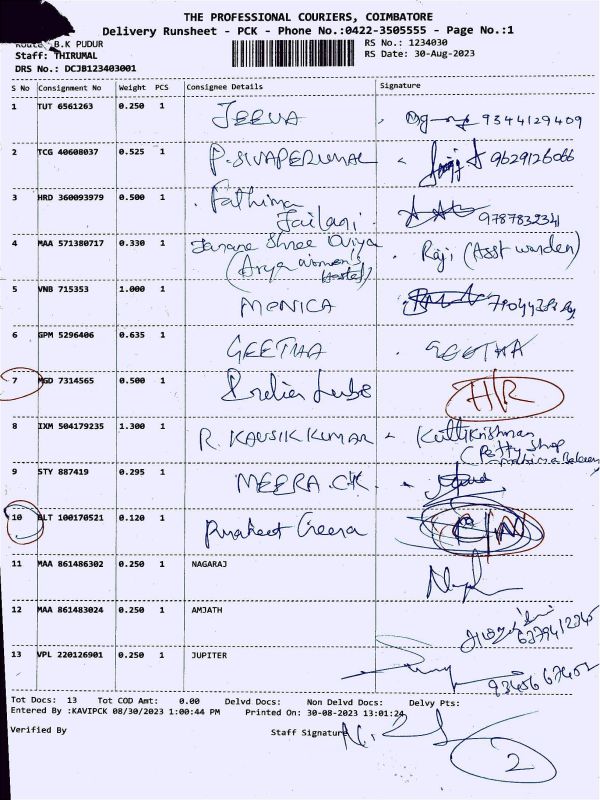 THE PROFESSIONAL COURIERS, COIMBATORE
Delivery Runsheet - PCK - Phone No.:0422-3505555 - Page No.:1
Route: B.K PUDUR RS No.: 1234030
Staff: THIRUMAL RS Date: 30-Aug-2023
DRS No.: DCJB123403001
S No Consignment No Weight PCS Consignee Details Signature
1 TUT 6561263 0.250 1 JEEVA 9344129409
2 TCG 40608037 0.525 1 P. SIVAPERUMAL 9629126066
3 HRD 360093979 0.500 1 Fathima
Jailani 9787832341
4 MAA 571380717 0.330 1 Janane Shree Oviya Raji (Asst warden)
(Arya women's
Hostel)
5 VNB 715353 1.000 1 MONICA
6 GPM 5296406 0.635 1 GEETHA GEETHA
7 MGD 7314565 0.500 1 H/R
8 IXM 504179235 1.300 1 R. KAUSIK KUMAR Kuttikrishnan
(Petty Shop
9 STY 887419 0.295 1 MEERA.CK
10 BLT 100170521 0.120 1
11 MAA 861486302 0.250 1 NAGARAJ
12 MAA 861483024 0.250 1 AMJATH
13 VPL 220126901 0.250 1 JUPITER
Tot Docs: 13 Tot COD Amt: 0.00 Delvd Docs: Non Delvd Docs: Delvy Pts:
Entered By :KAVIPCK 08/30/2023 1:00:44 PM Printed On: 30-08-2023 13:01:24
Verified By Staff Signature
2